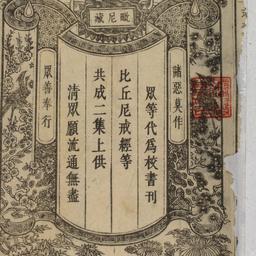 毗尼藏
諸惡莫作
眾等代為校書刊
比丘尼戒經等
共成二集上供
清眾願流通無盡
眾善奉行